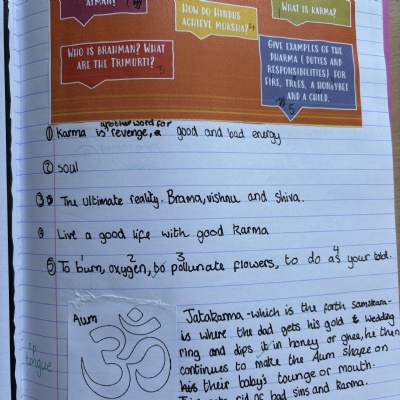 ATMAN?
HOW DO HINDUS ACHIEVE MOKSHA?
WHAT IS KARMA?
WHO IS BRAHMAN? WHAT ARE THE TRIMURTI?
GIVE EXAMPLES OF THE DHARMA (DUTIES AND RESPONSIBILITIES) FOR FIRE, TREES, A HONEYBEE AND A CHILD.
5
another word for
① Karma is revenge, good and bad energy
② soul
③ The ultimate reality. Brama, vishnu and shiva.
④ Live a good life with good karma
1 2 3 4
⑤ To burn, oxygen, to pollunate flowers, to do as your told.
Aum
Jatakarma - which is the forth samskara -
is where the dad gets his gold & wedding
ring and dips it in honey or ghee, he then
continues to make the Aum shape on
their baby's tounge or mouth.
rid of bad sins and karma.
sp
tongue